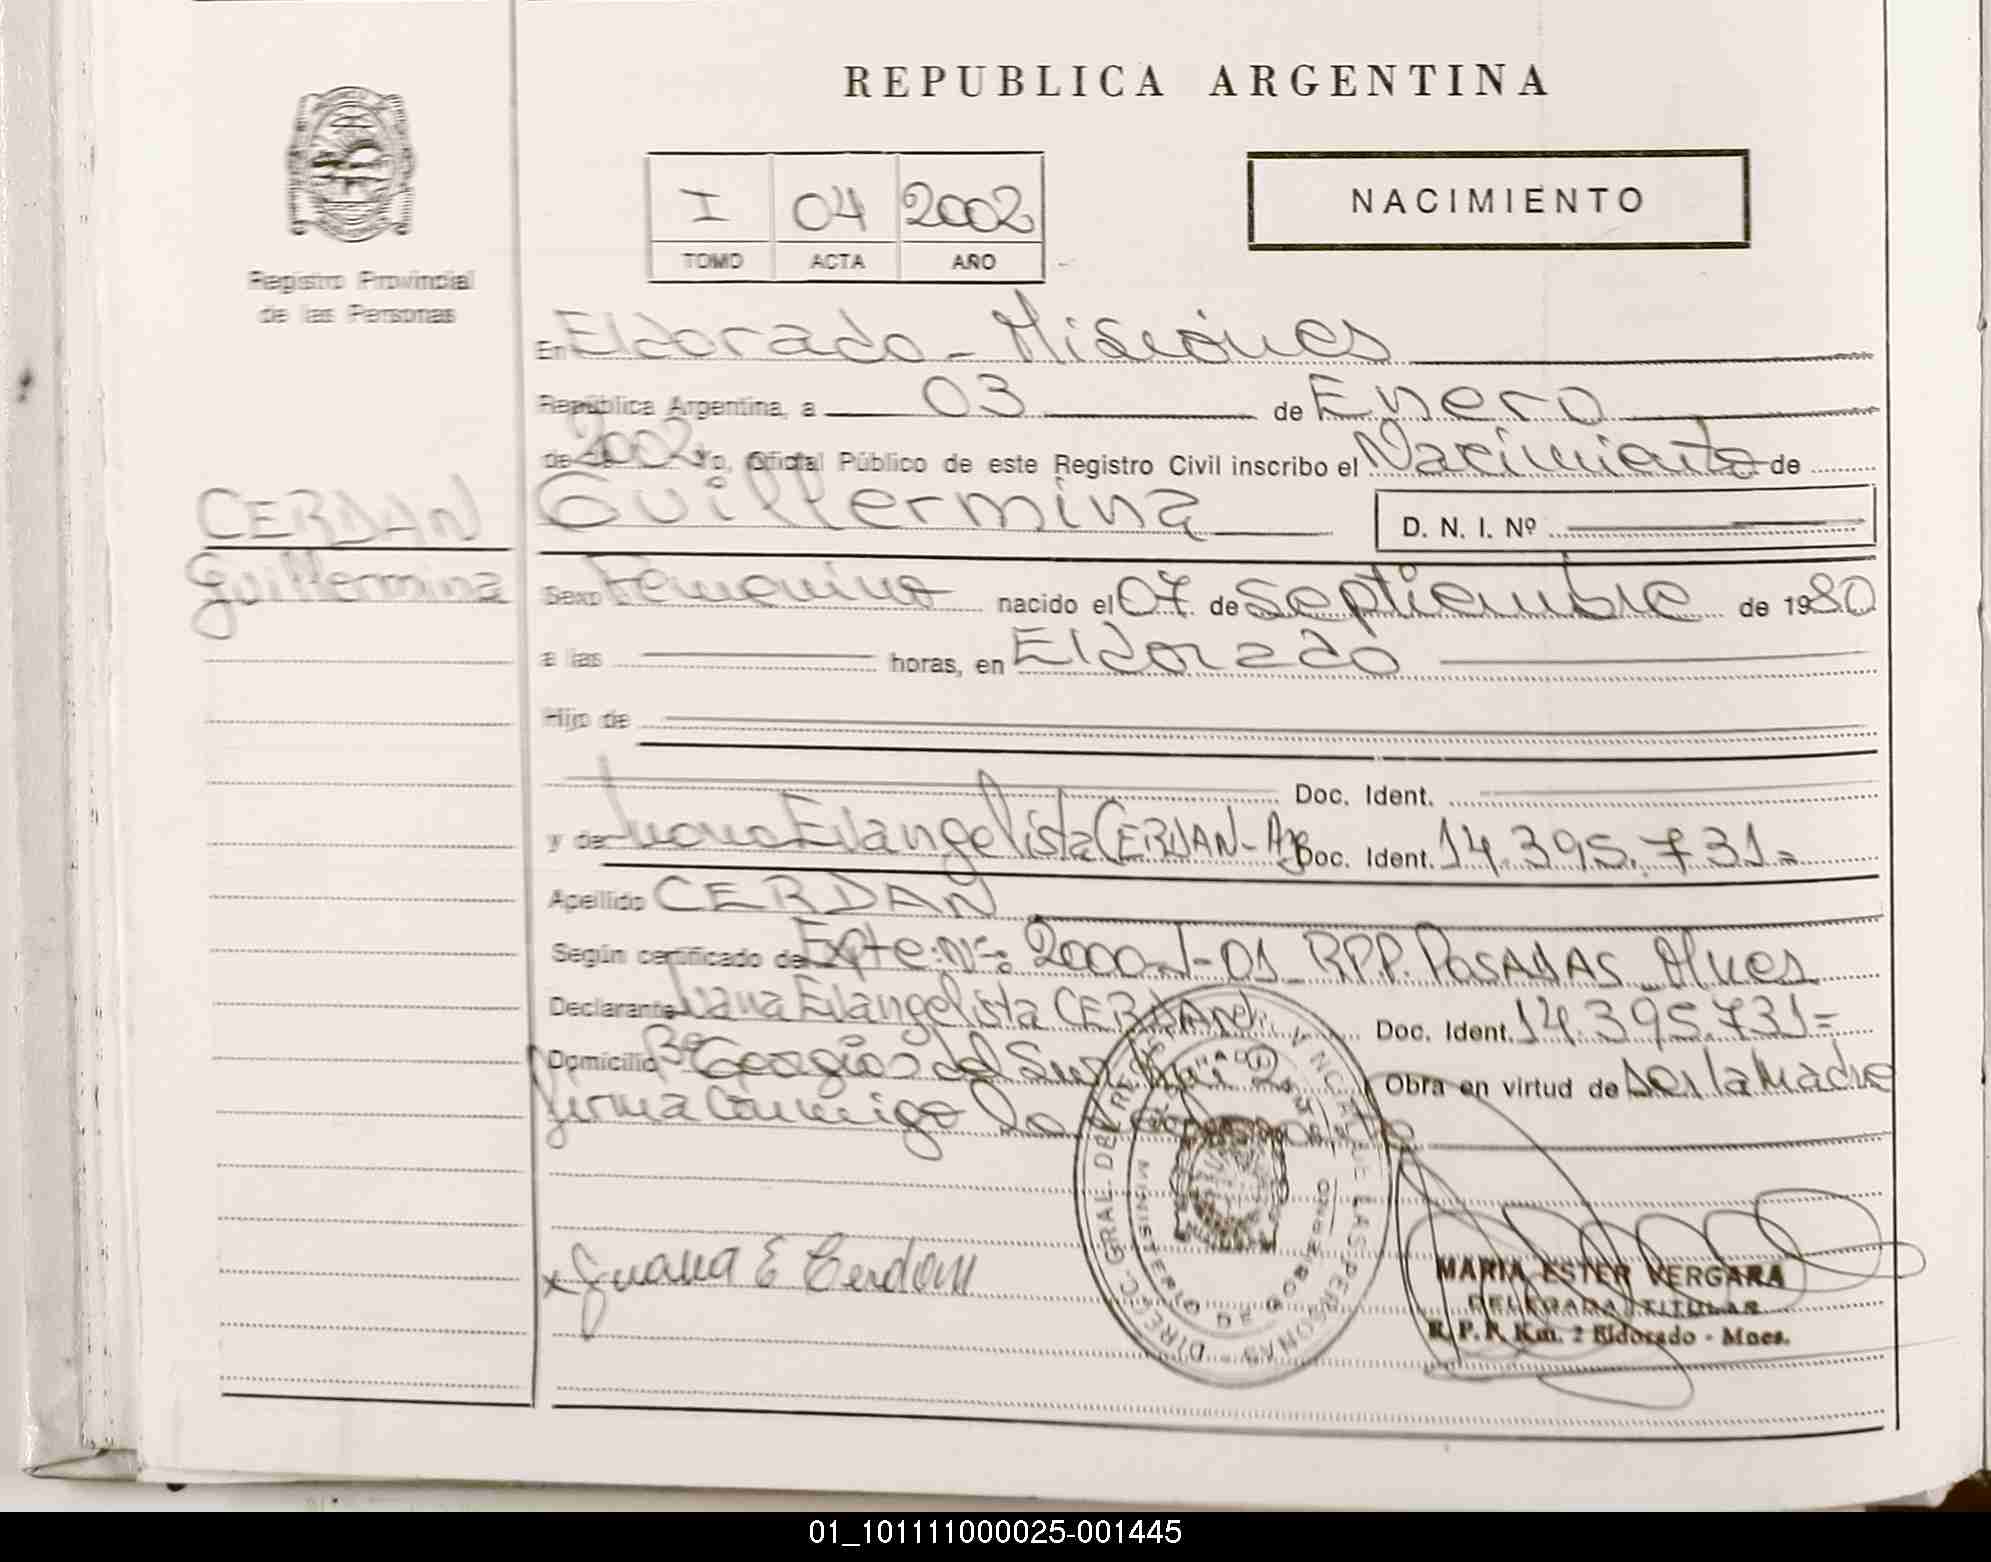 REPUBLICA ARGENTINA
Registro Provincial
de las Personas
I 04 2002
TOMO ACTA AÑO
NACIMIENTO
En Eldorado - Misiones
República Argentina, a 03 de Enero
de 2002 Yo, Oficial Público de este Registro Civil inscribo el Nacimiento de
Guillermina
D. N. I. Nº
CERDAN
Guillermina
Sexo Femenino nacido el 07 de Septiembre de 1980
a las horas, en Eldorado
Hijo de
Doc. Ident.
y de Juana Evangelista CERDAN - Arg Doc. Ident. 14.395.731=
Apellido CERDAN
Según certificado de Expte: Nº: 2000-J-01 RPP. POSADAS Mnes
Declarante Juana Evangelista CERDAN Doc. Ident. 14.395.731=
Domicilio Bº Georgias del Sur Obra en virtud de ser la Madre
firma conmigo la
DIRECC. GRAL. DEL REGIST. PROVINCIAL DE LAS PERSONAS
MINISTERIO DE GOBIERNO
x Juana E Cerdan
MARIA ESTER VERGARA
DELEGADA TITULAR
R. P. P. Km. 2 Eldorado - Mnes.
01_101111000025-001445